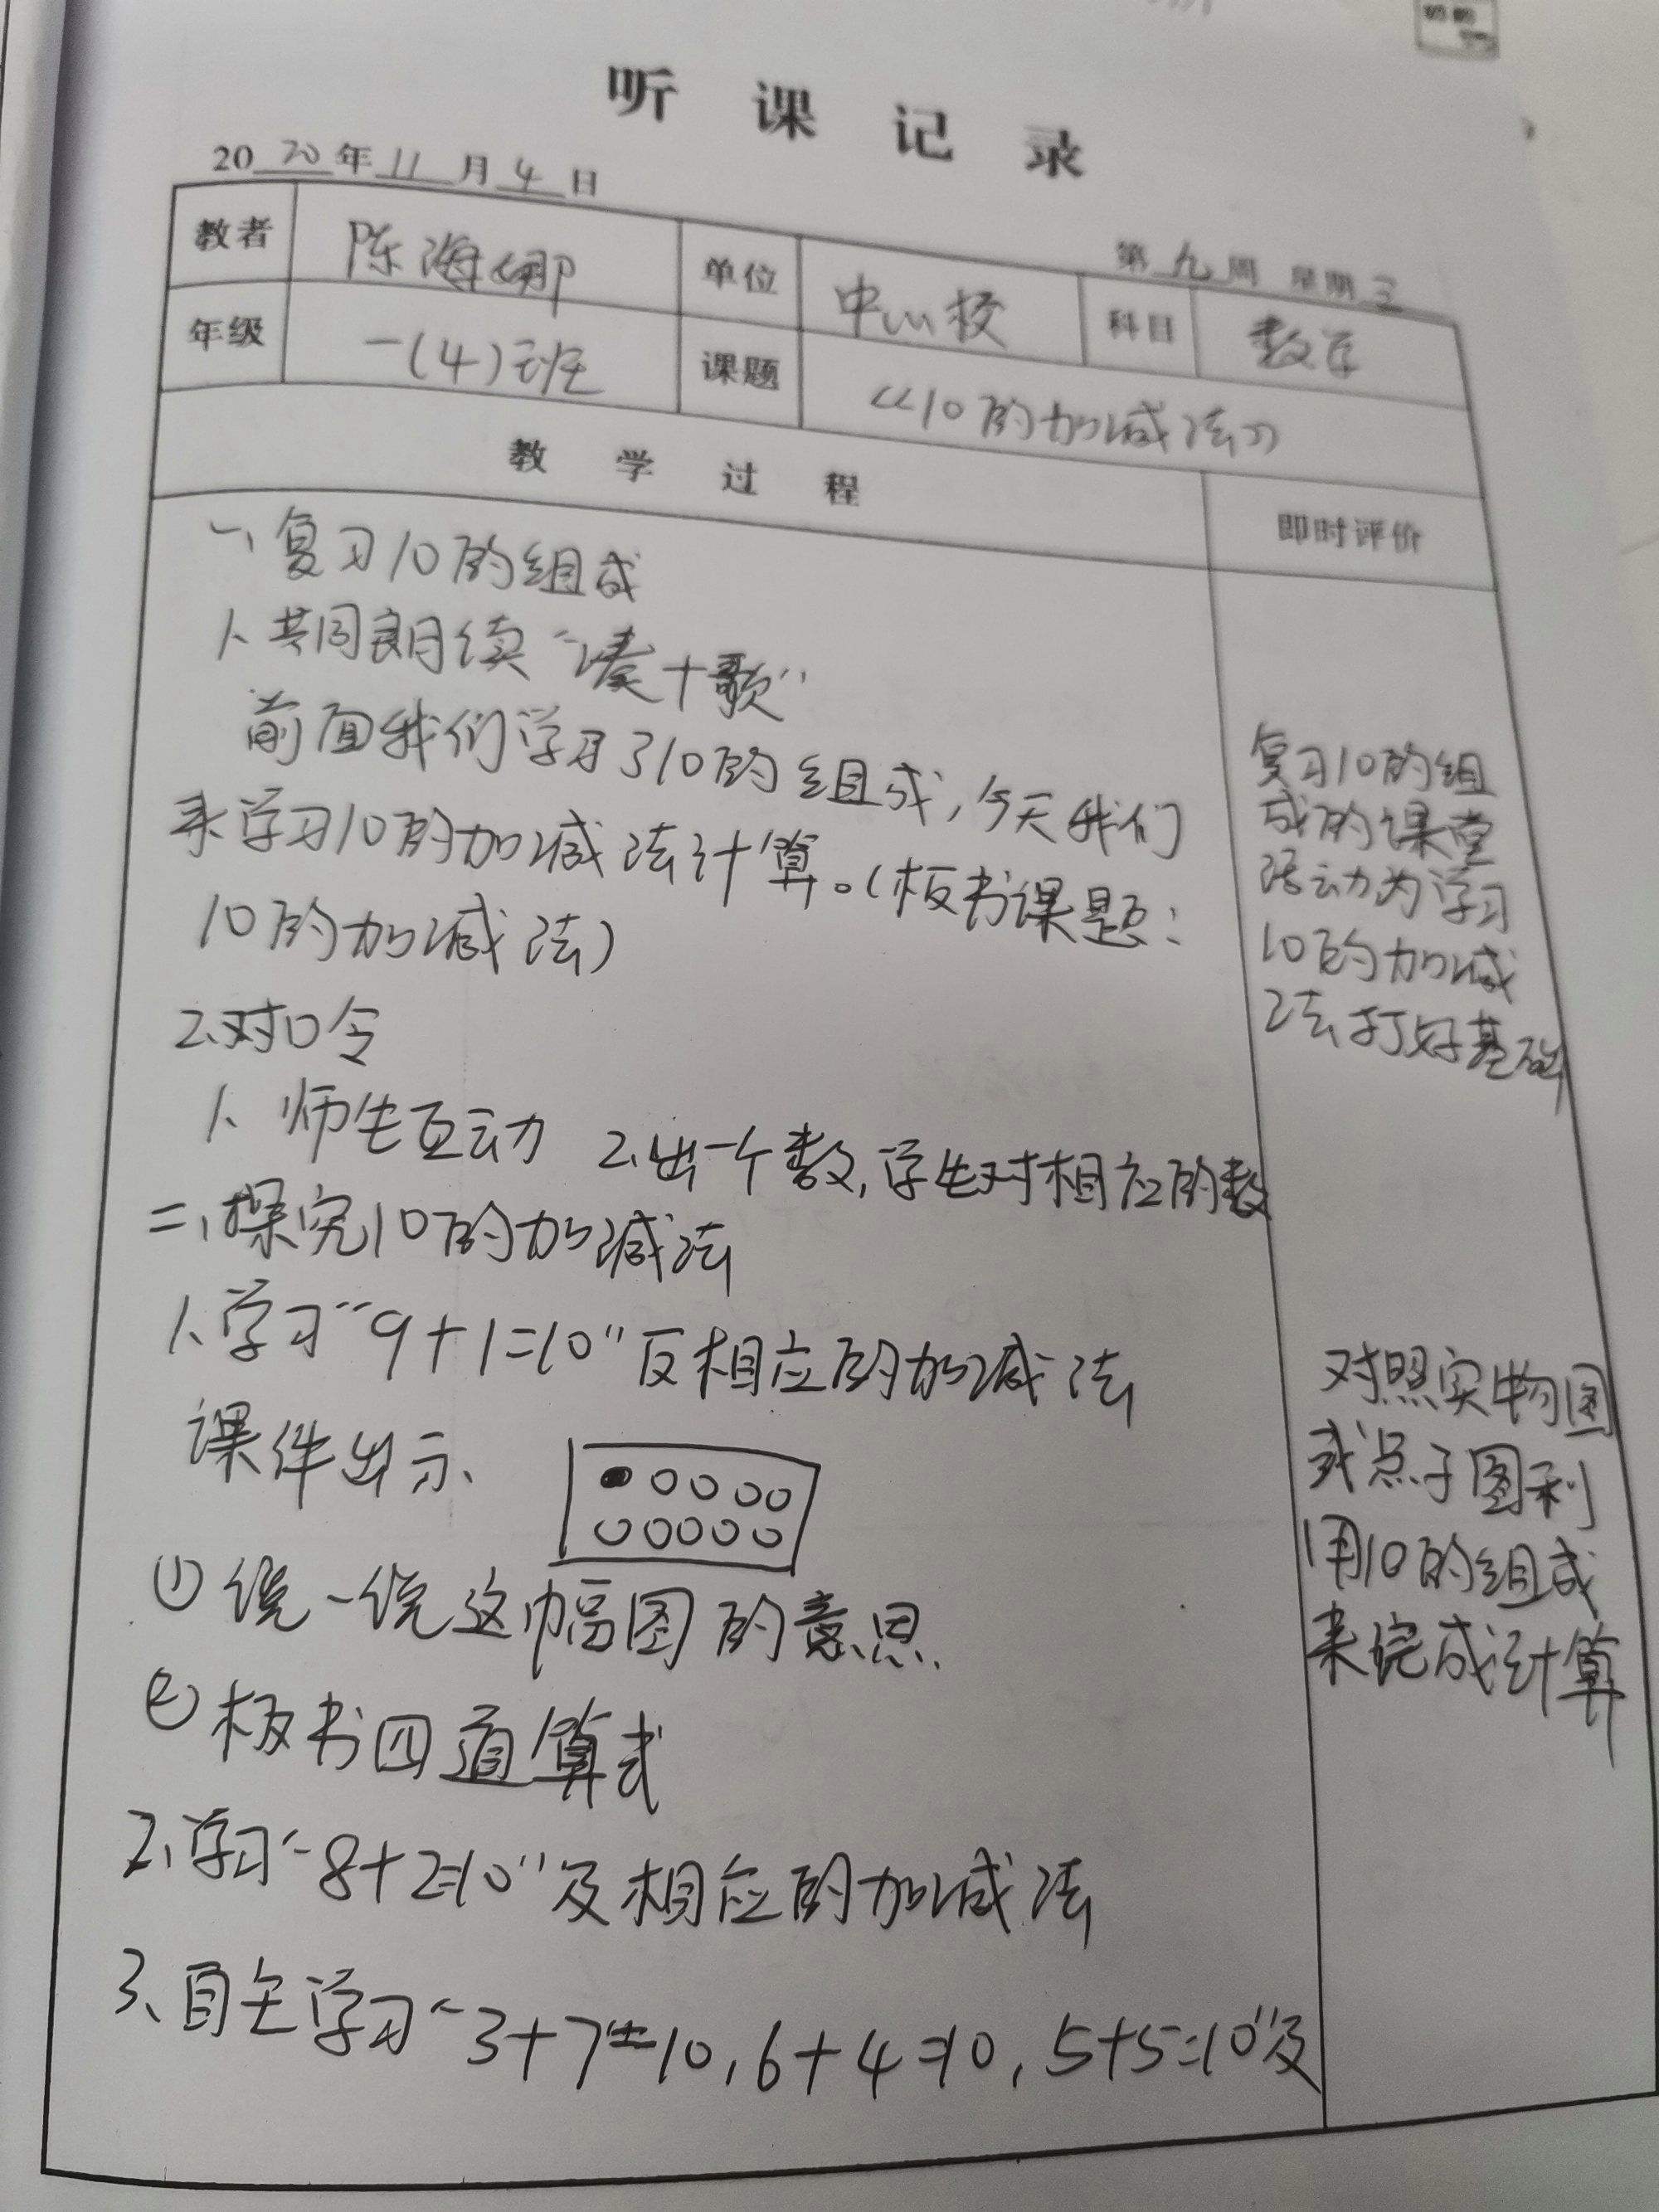 听课记录
2020年11月4日
第九周 星期三
教者 陈海娜 单位 中心校 科目 数学
年级 一(4)班 课题 《10的加减法》
教学过程 即时评价
一、复习10的组成
1、共同朗读“凑十歌”
前面我们学习了10的组成,今天我们
来学习10的加减法计算。(板书课题:
10的加减法)
2、对口令
1、师生互动 2、出一个数,学生对相应的数
二、探究10的加减法
1、学习“9+1=10”及相应的加减法
课件出示、
①说一说这幅图的意思、
②板书四道算式
2、学习“8+2=10”及相应的加减法
3、自主学习“3+7=10,6+4=10,5+5=10”及
复习10的组
成的课堂
活动为学习
10的加减
法打好基础
对照实物图
或点子图利
用10的组成
来完成计算